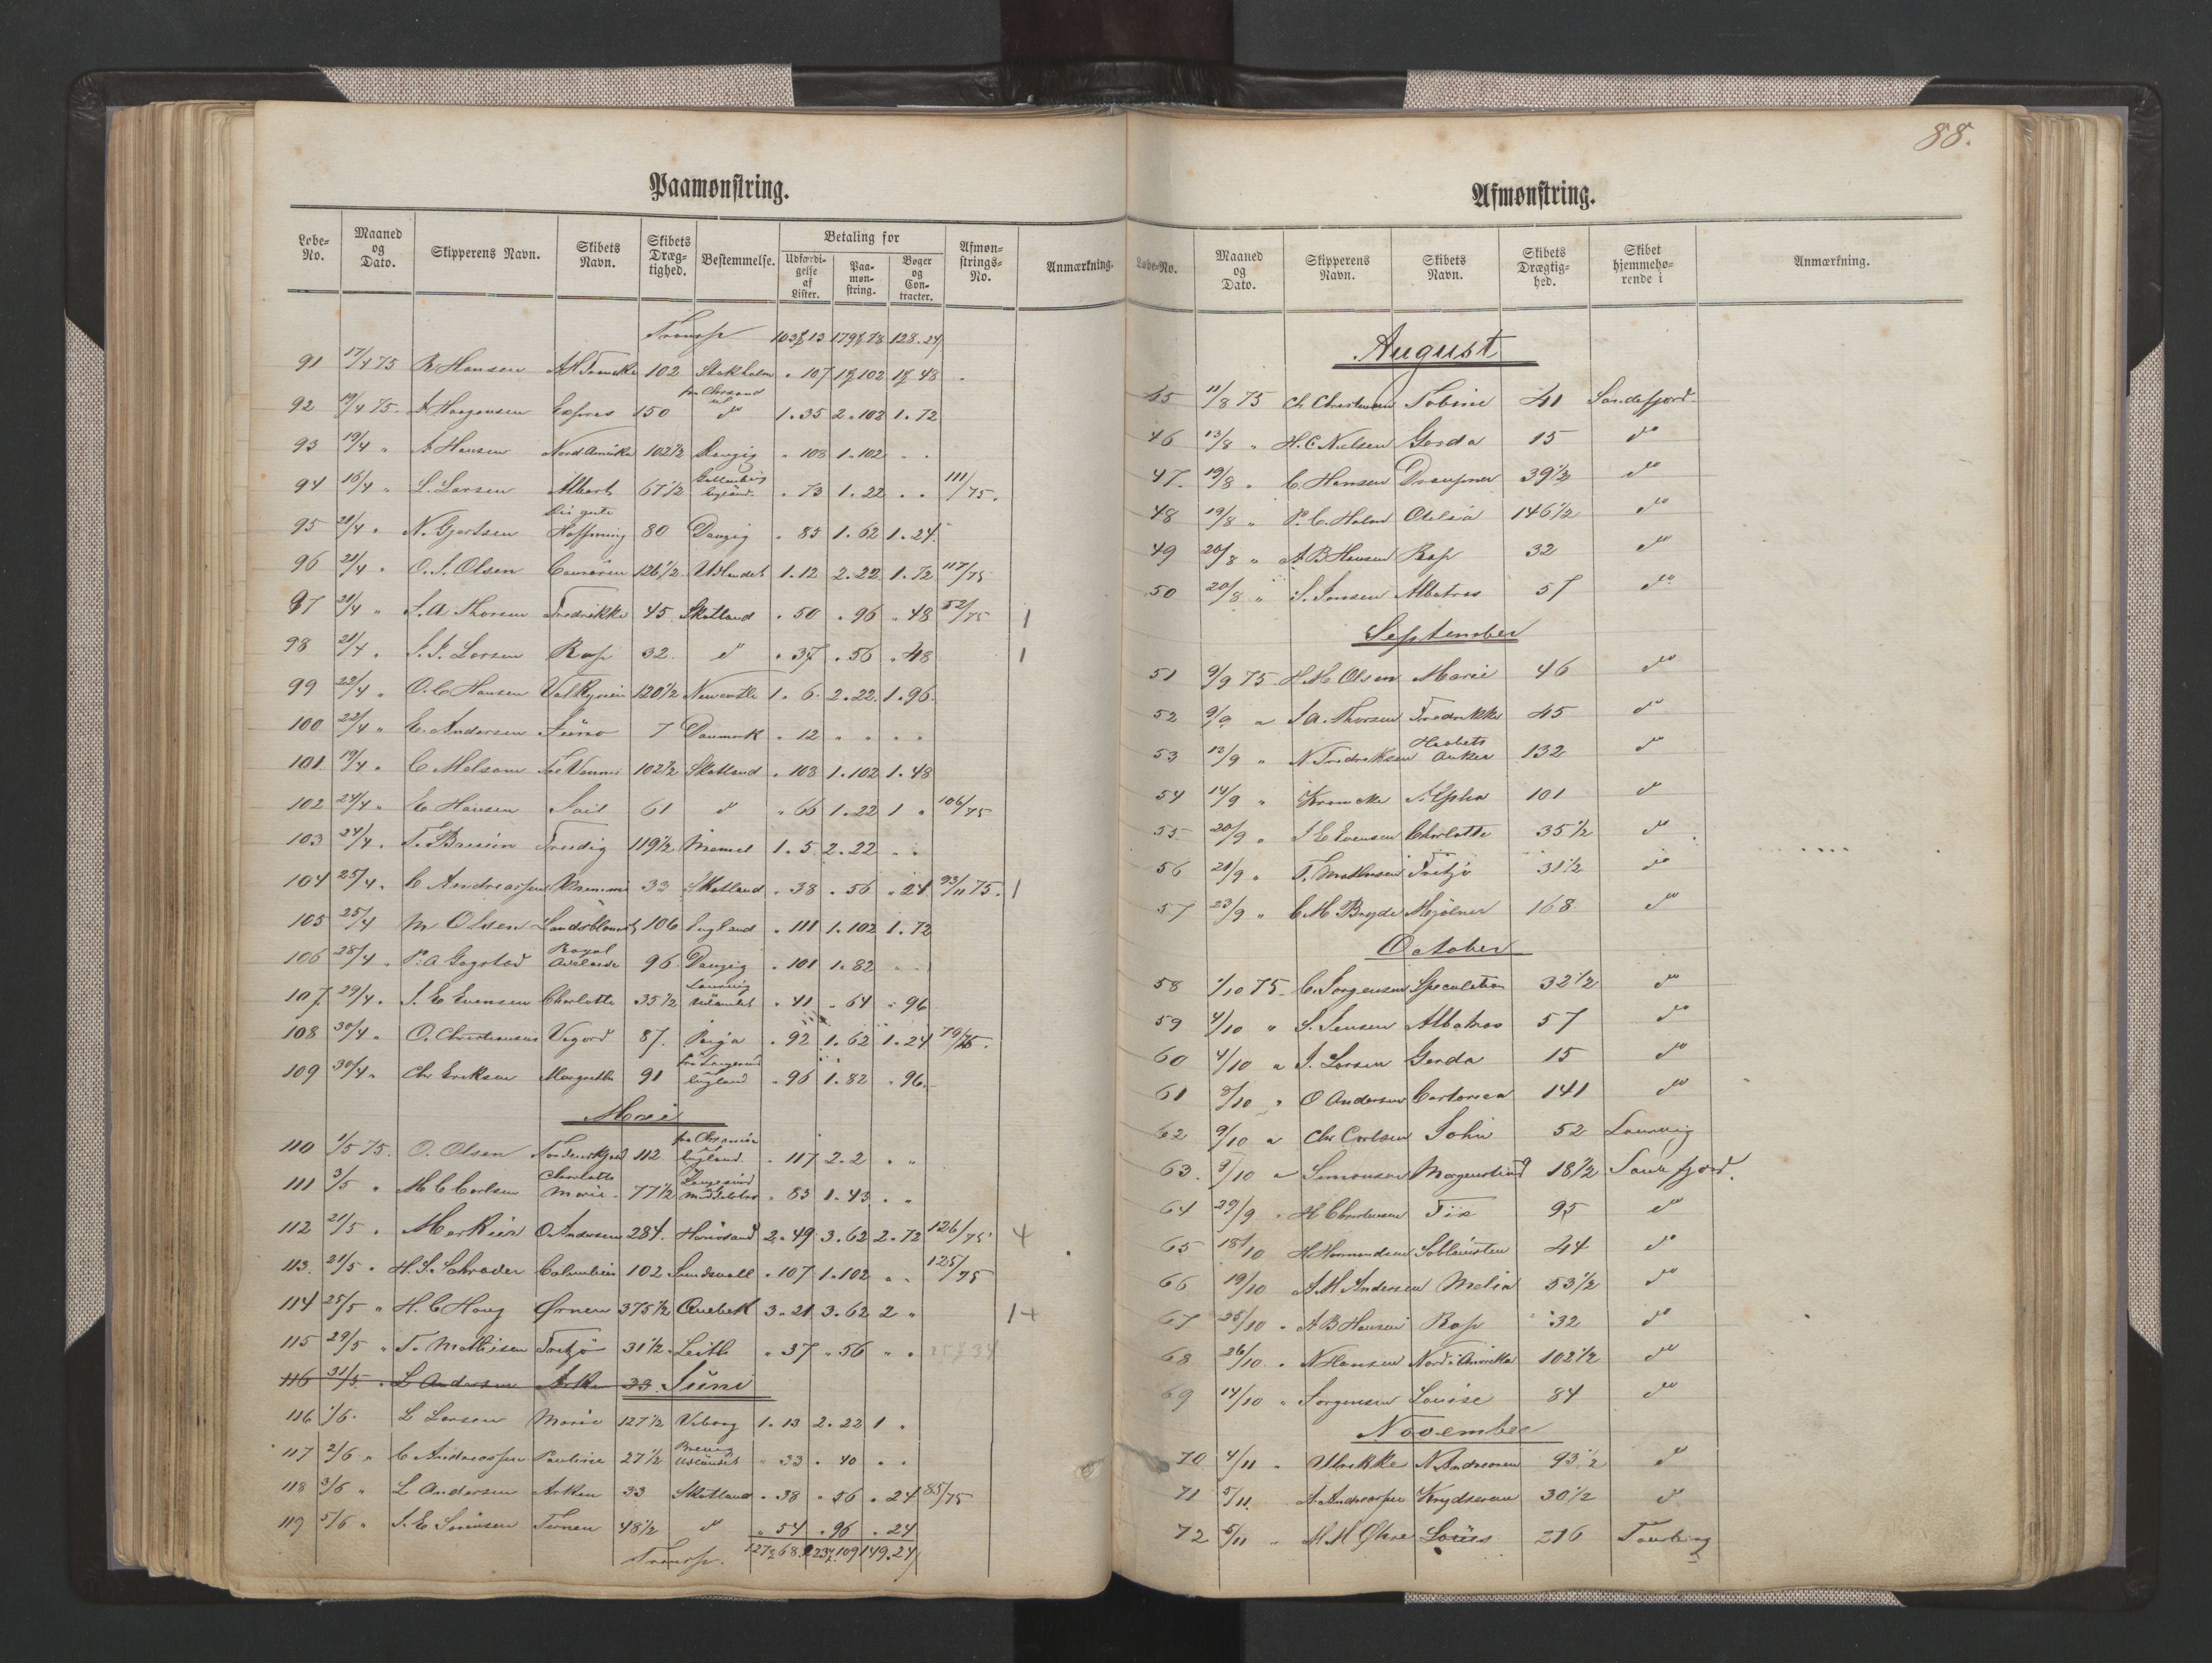 88.
Paamønstring.
Løbe-No. Maaned og Dato. Skipperens Navn. Skibets Navn. Skibets Dræg-tighed. Bestemmelse. Betaling for Udfærdi-gelse af Lister. Paa-møn-string. Bøger og Con-tracter. Afmøn-strings-No. Anmærkning.
Transp 128.24
91 17/4 75 102 Stokholm 107 102 48
92 19/4 75. Expres 150 do 1.35 2.102 1.72
93 19/4 " A Hansen Nord Amerika 102½ Danzig " 108 1.102 " "
94 16/4 " L. Larsen Albert 67½ " 73 1.22 " " 111/75.
95 21/4 " N. Gjertsen Die gute Hoffnung 80 Danzig " 85 1.62 1.24
96 21/4 " O. J. Olsen 126½ Udlandet 1.12 2.22 1.72 117/75
97 21/4 " J. A. Thorsen Fredrikke 45 Skotland " 50 " 96 " 48 52/75 1
98 21/4 " J. J. Larsen Rap 32. do " 37 " 56 " 48 1
99 22/4 " O. C Hansen Valkyrien 120½ Newcastle 1.6. 2.22. 1.96.
100 22/4 " C. Andersen Juno 7 Danmark " 12 " " " "
101. 19/4 " C. Melsom 102½ Skotland " 103 1.102 1.48
102 24/4 " E. Hansen 61 do " 66 1.22 1 " 106/75
103 24/4 " 119½ Memel 1.5 2.22 " "
104 25/4 " C Andreassen 33 Skotland " 38 " 56 " 24. 93/11 75. 1
105 25/4 M Olsen 106 England " 111 1.102 1.72
106 28/4 " P. A Gogstad Royal Adelaide 96. Danzig " 101 1.82 " "
107. 29/4 " J. E Evensen Charlotte 35½ Laurvig Udlandet " 41 " 64 " 96
108 30/4 " O. Christensen 87. Riga " 92 1.62 1.24
109 30/4 " Chr Eriksen Margrethe 91 England " 96 1.82 " 96.
Mai
110 1/5 75. O. Olsen 112 England " 117 2.2 " "
111 3/5 " M C Carlsen Charlotte Marie 77½ " 83 1.43 " "
112 21/5 " O. Andersen 284. 2.49 3.62 2.72 126/75 4
113. 21/5 " H. S. Schrøder Columbus 102 Sundsvall " 107 1.102 " " 125/75
114 25/5 " H. C Haug Ørnen 375½ Quebek 3.21 3.62 2 "
115 29/5 " T. Mathisen Fritzø 31½ Leith " 37 " 56 " "
116 31/5. L Andersen Arken 33. Juni
116 1/6. L Larsen Marie 127½ Viborg 1.13 2.22 1 "
117 2/6 " C Andreassen Pauline 27½ Udlandet " 33 " 40 " "
118 3/6 " L Andersen Arken 33 Skotland " 38 " 56 " 24 85/75
119 5/6 " J. E Ternen 48½ do " 54 " 96 " 24
Transp. 149.24
Afmønstring.
Løbe-No. Maaned og Dato. Skipperens Navn. Skibets Navn. Skibets Drægtig-hed. Skibet hjemmehø-rende i Anmærkning.
August
45 11/8 75 Ch Christensen Tobine 41 Sandefjord
46 13/8 " H. C Nielsen Gerda 15 do
47. 19/8 " C. Hansen Draupner 39½ do
48 19/8 " P. C. Holm Otelia 146½ do
49 20/8 " A B Hansen Rap 32 do
50 20/8 " S. Jensen Albatros 57 do
September
51 9/9 75 H. M. Olsen Marie 46 do
52 9/9 " J A. Thorsen Fredrikke 45 do
53 12/9 " N. Fredriksen Haabets Anker 132 do
54 14/9 " 101 do
55 20/9 " J E Evensen Charlotte 35½ do
56 21/9 " T. Mathisen Fritzø 31½ do
57 23/9 " C. M Bryde Mjølner 168 do
October
58 1/10 75 C. Jørgensen Speculation 32½ do
59 4/10 " S. Jensen Albatros 57 do
60 4/10 " J. Larsen Gerda 15 do
61 8/10 " O Andersen 141 do
62 9/10 " Chr Carlsen 52 Laurvig
63. 9/10 " Simonsen 18½ Sandefjord.
64 29/9 " H Christensen 95 do
65 18/10 44 do
66 19/10 A. M. Andersen 53½ do
67 25/10 " A B Hansen Rap 32 do
68 26/10 " N Hansen Nord Amerika 102½ do
69 14/10 " Jørgensen Louise 84 do
November
70 4/11 " Ulrikke N. Andersen 93½ do
71 5/11 A. Andreassen Krydseren 30½ do
72 5/11 " M. M Louis 216 Tønsberg